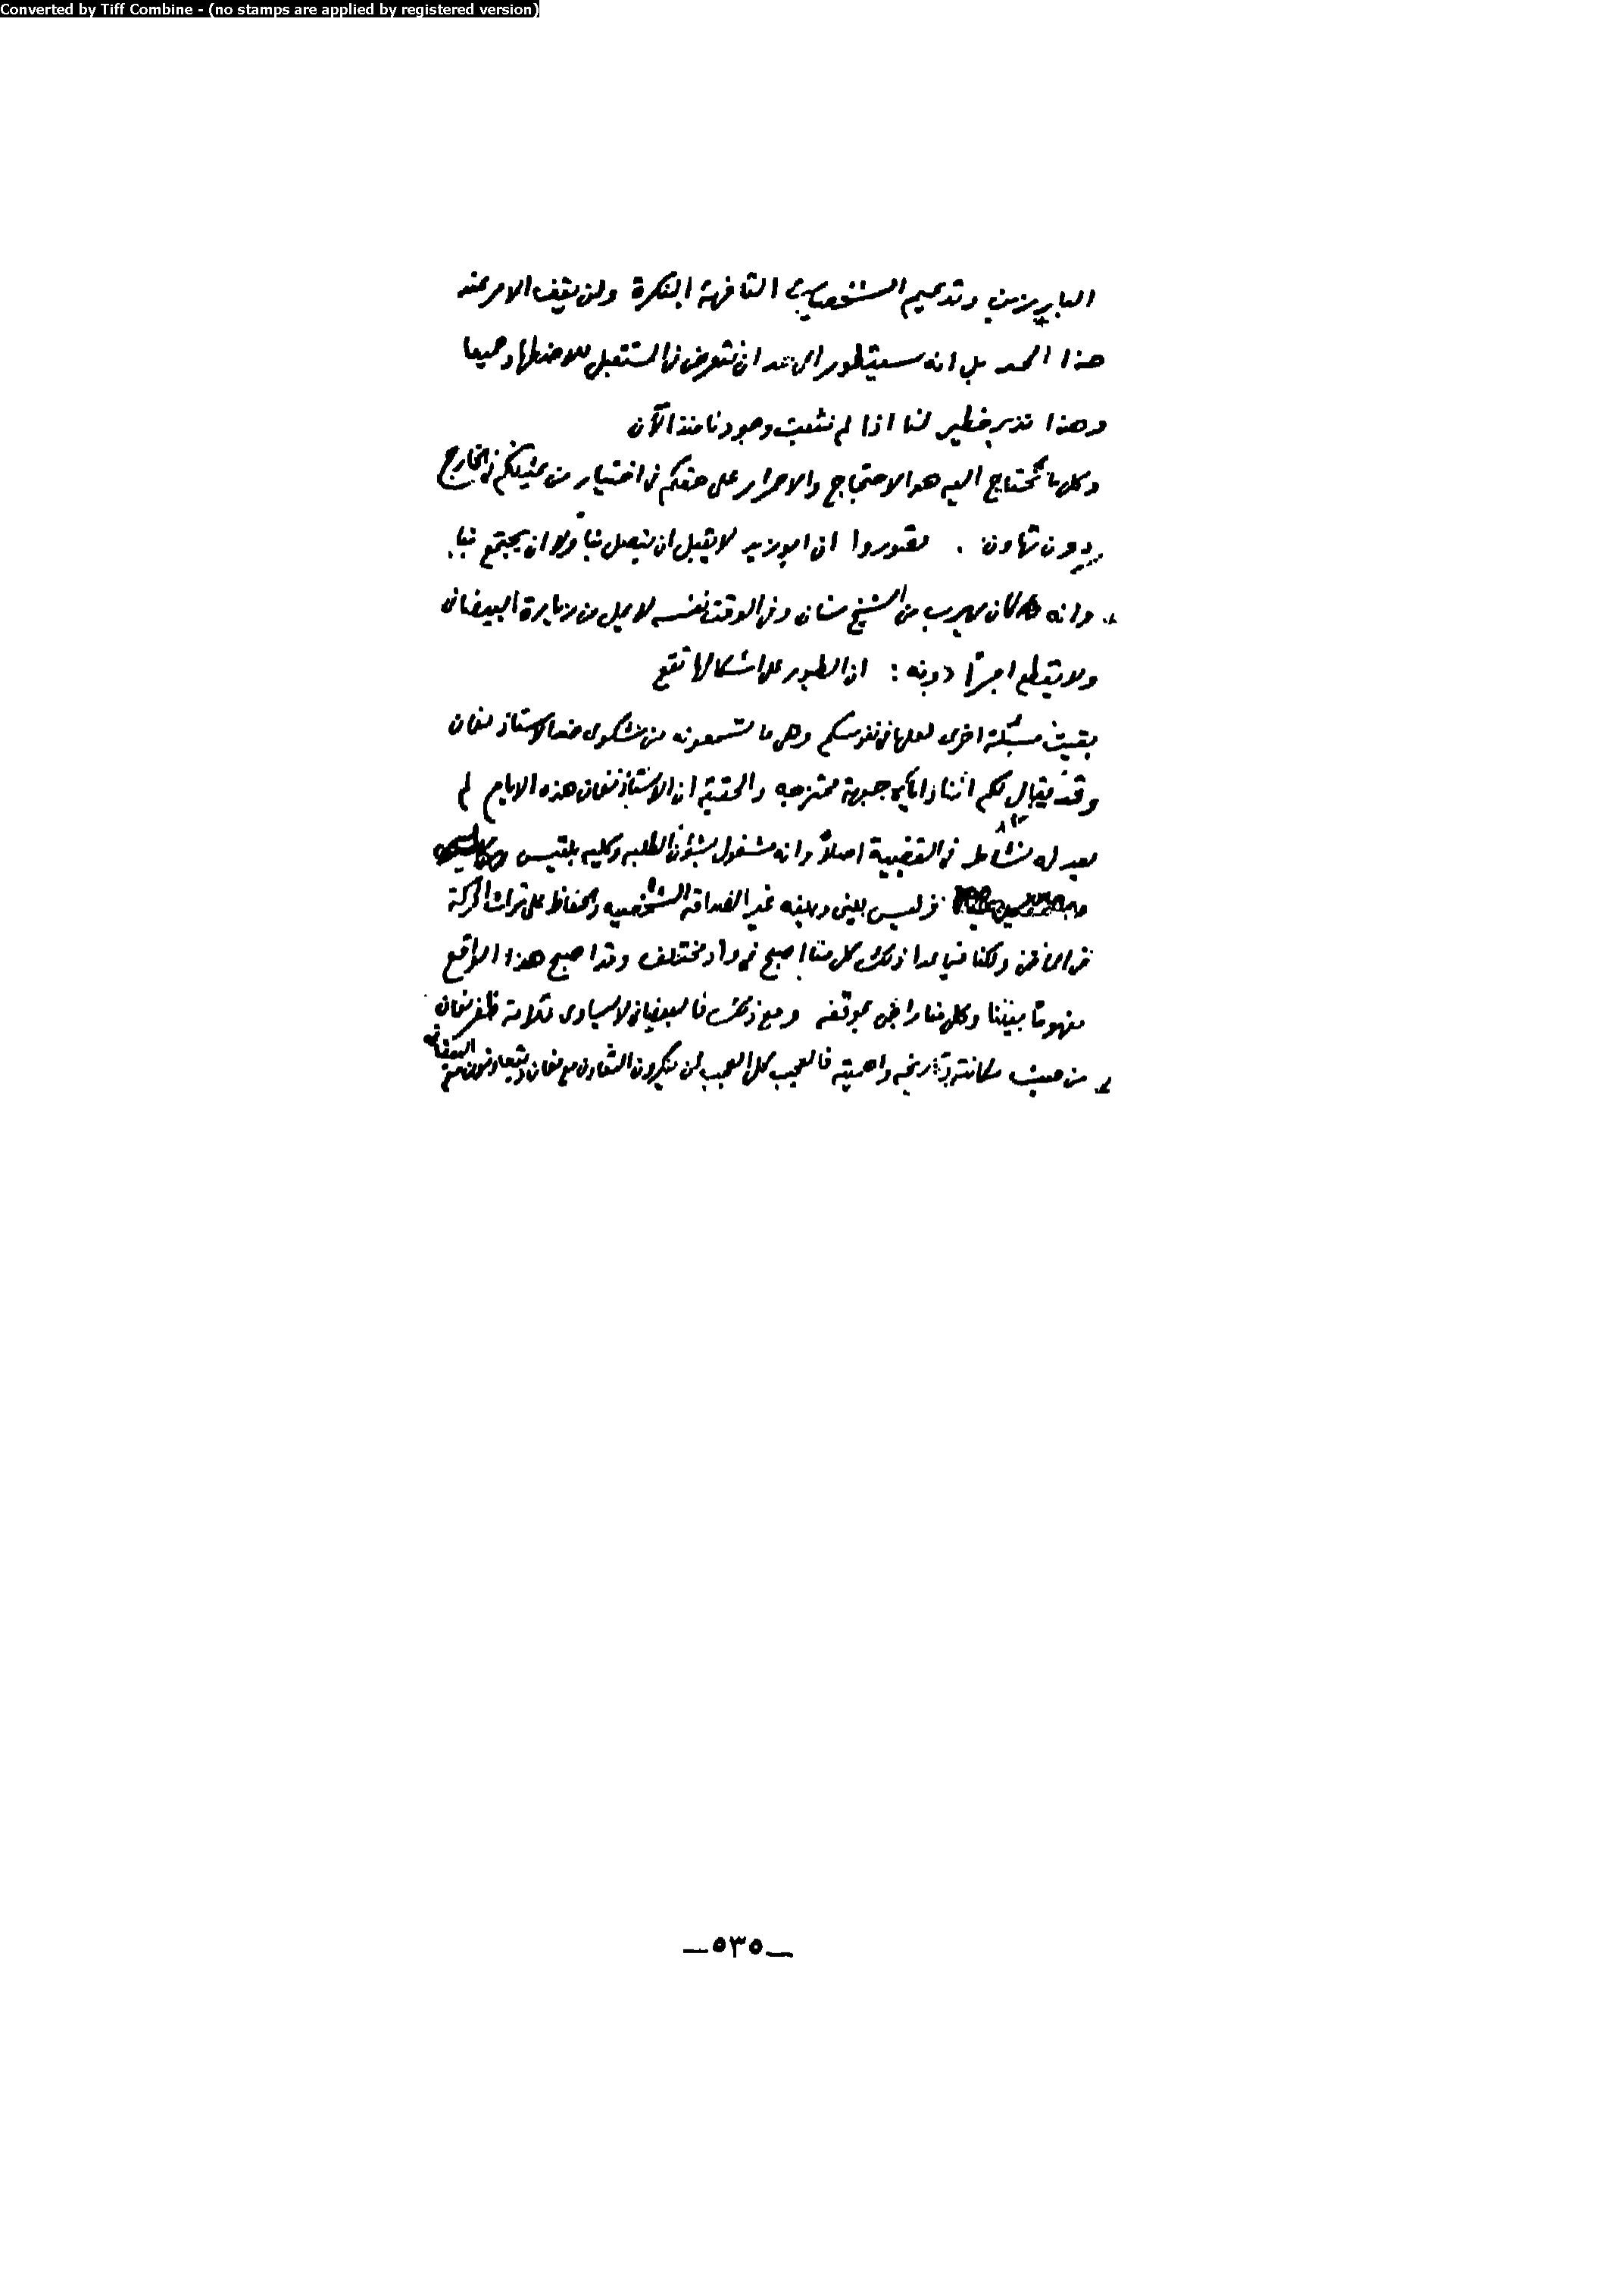 Converted by Tiff Combine - (no stamps are applied by registered version)
البارزين وتدعيم الشخصيات التافهة النكرة ولن يقف الامر عند
هذا الحد بل انه سيتطور الى حد ان نتعرض في المستقبل للاضطهاد جميعا
وهذا نذير خطير لنا اذا لم نثبت وجودنا منذ الآن
وكل ما نحتاج اليه هو الاحتجاج والاصرار على حقكم في اختيار من يمثلكم في الخارج
بدون تهاون . تصوروا ان ابو زيد لا يقبل ان يتصل بنا ولا ان يجتمع بنا
وانه كان يهرب من الشيخ سنان وفي الوقت نفسه لا يمل من زيارة البيضاني
ولا يقطع امراً دونه : ان الطيور على اشكالها تقع
بقيت مسئلة اخرى لعلها في نفوسكم وهي ما تسمعونه من شكوى ضد الاستاذ نعمان
وقد يقال لكم اننا واياه جبهة ممتزجة والحقيقة ان الاستاذ نعمان هذه الايام لم
يعد له نشاط في القضية اصلاً وانه مشغول بشؤون الطلبه وكليه بلقيس
فليس بيني وبينه غير الصداقة الشخصيه والحفاظ على تراث الحركة
في الماضي ولكنا فيما عدا ذلك كل منا اصبح في واد مختلف وقد اصبح هذا الواقع
مفهوماً بيننا وكل منا راض بموقفه ومع ذلك فالبيضاني لا يساوي قلامة ظفر نعمان
من حيث مكانته وتاريخه واهميته فالعجب كل العجب لمن ينكرون التعاون مع نعمان ويتعاونون مع البيضاني
ـ٥٣٥ـ